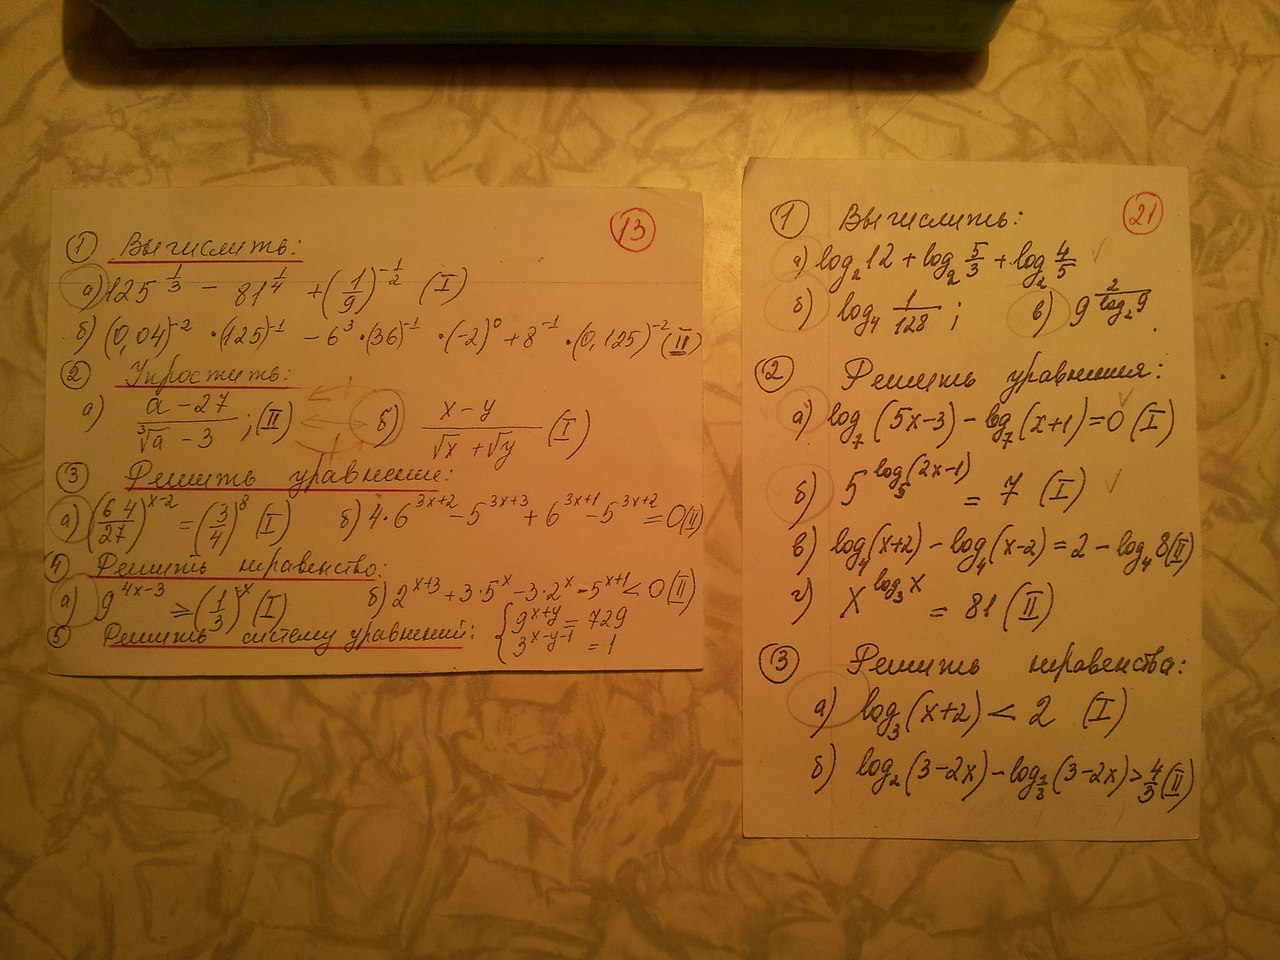 13
① Вычислить:
а) 125^{1/3} - 81^{1/4} + (1/9)^{-1/2} (I)
б) (0,04)^{-2} · (125)^{-1} - 6^3 · (36)^{-1} · (-2)^0 + 8^{-1} · (0,125)^{-2} (II)
② Упростить:
а) (a - 27)/(∛a - 3) ; (II) б) (x - y)/(√x + √y) (I)
③ Решить уравнение:
а) (64/27)^{x-2} = (3/4)^8 (I) б) 4·6^{3x+2} - 5^{3x+3} + 6^{3x+1} - 5^{3x+2} = 0 (II)
④ Решить неравенство:
а) 9^{4x-3} ≥ (1/3)^x (I) б) 2^{x+3} + 3·5^x - 3·2^x - 5^{x+1} < 0 (II)
⑤ Решить систему уравнений: { 9^{x+y} = 729
3^{x-y-1} = 1
21
① Вычислить:
а) log_2 12 + log_2 5/3 + log_2 4/5
б) log_4 1/128 ; в) 9^{2/log_2 9}.
② Решить уравнения:
а) log_7 (5x-3) - log_7 (x+1) = 0 (I)
б) 5^{log_5 (2x-1)} = 7 (I)
в) log_4 (x+2) - log_4 (x-2) = 2 - log_4 8 (II)
г) x^{log_3 x} = 81 (II)
③ Решить неравенства:
а) log_3 (x+2) < 2 (I)
б) log_2 (3-2x) - log_{1/8} (3-2x) > 4/3 (II)